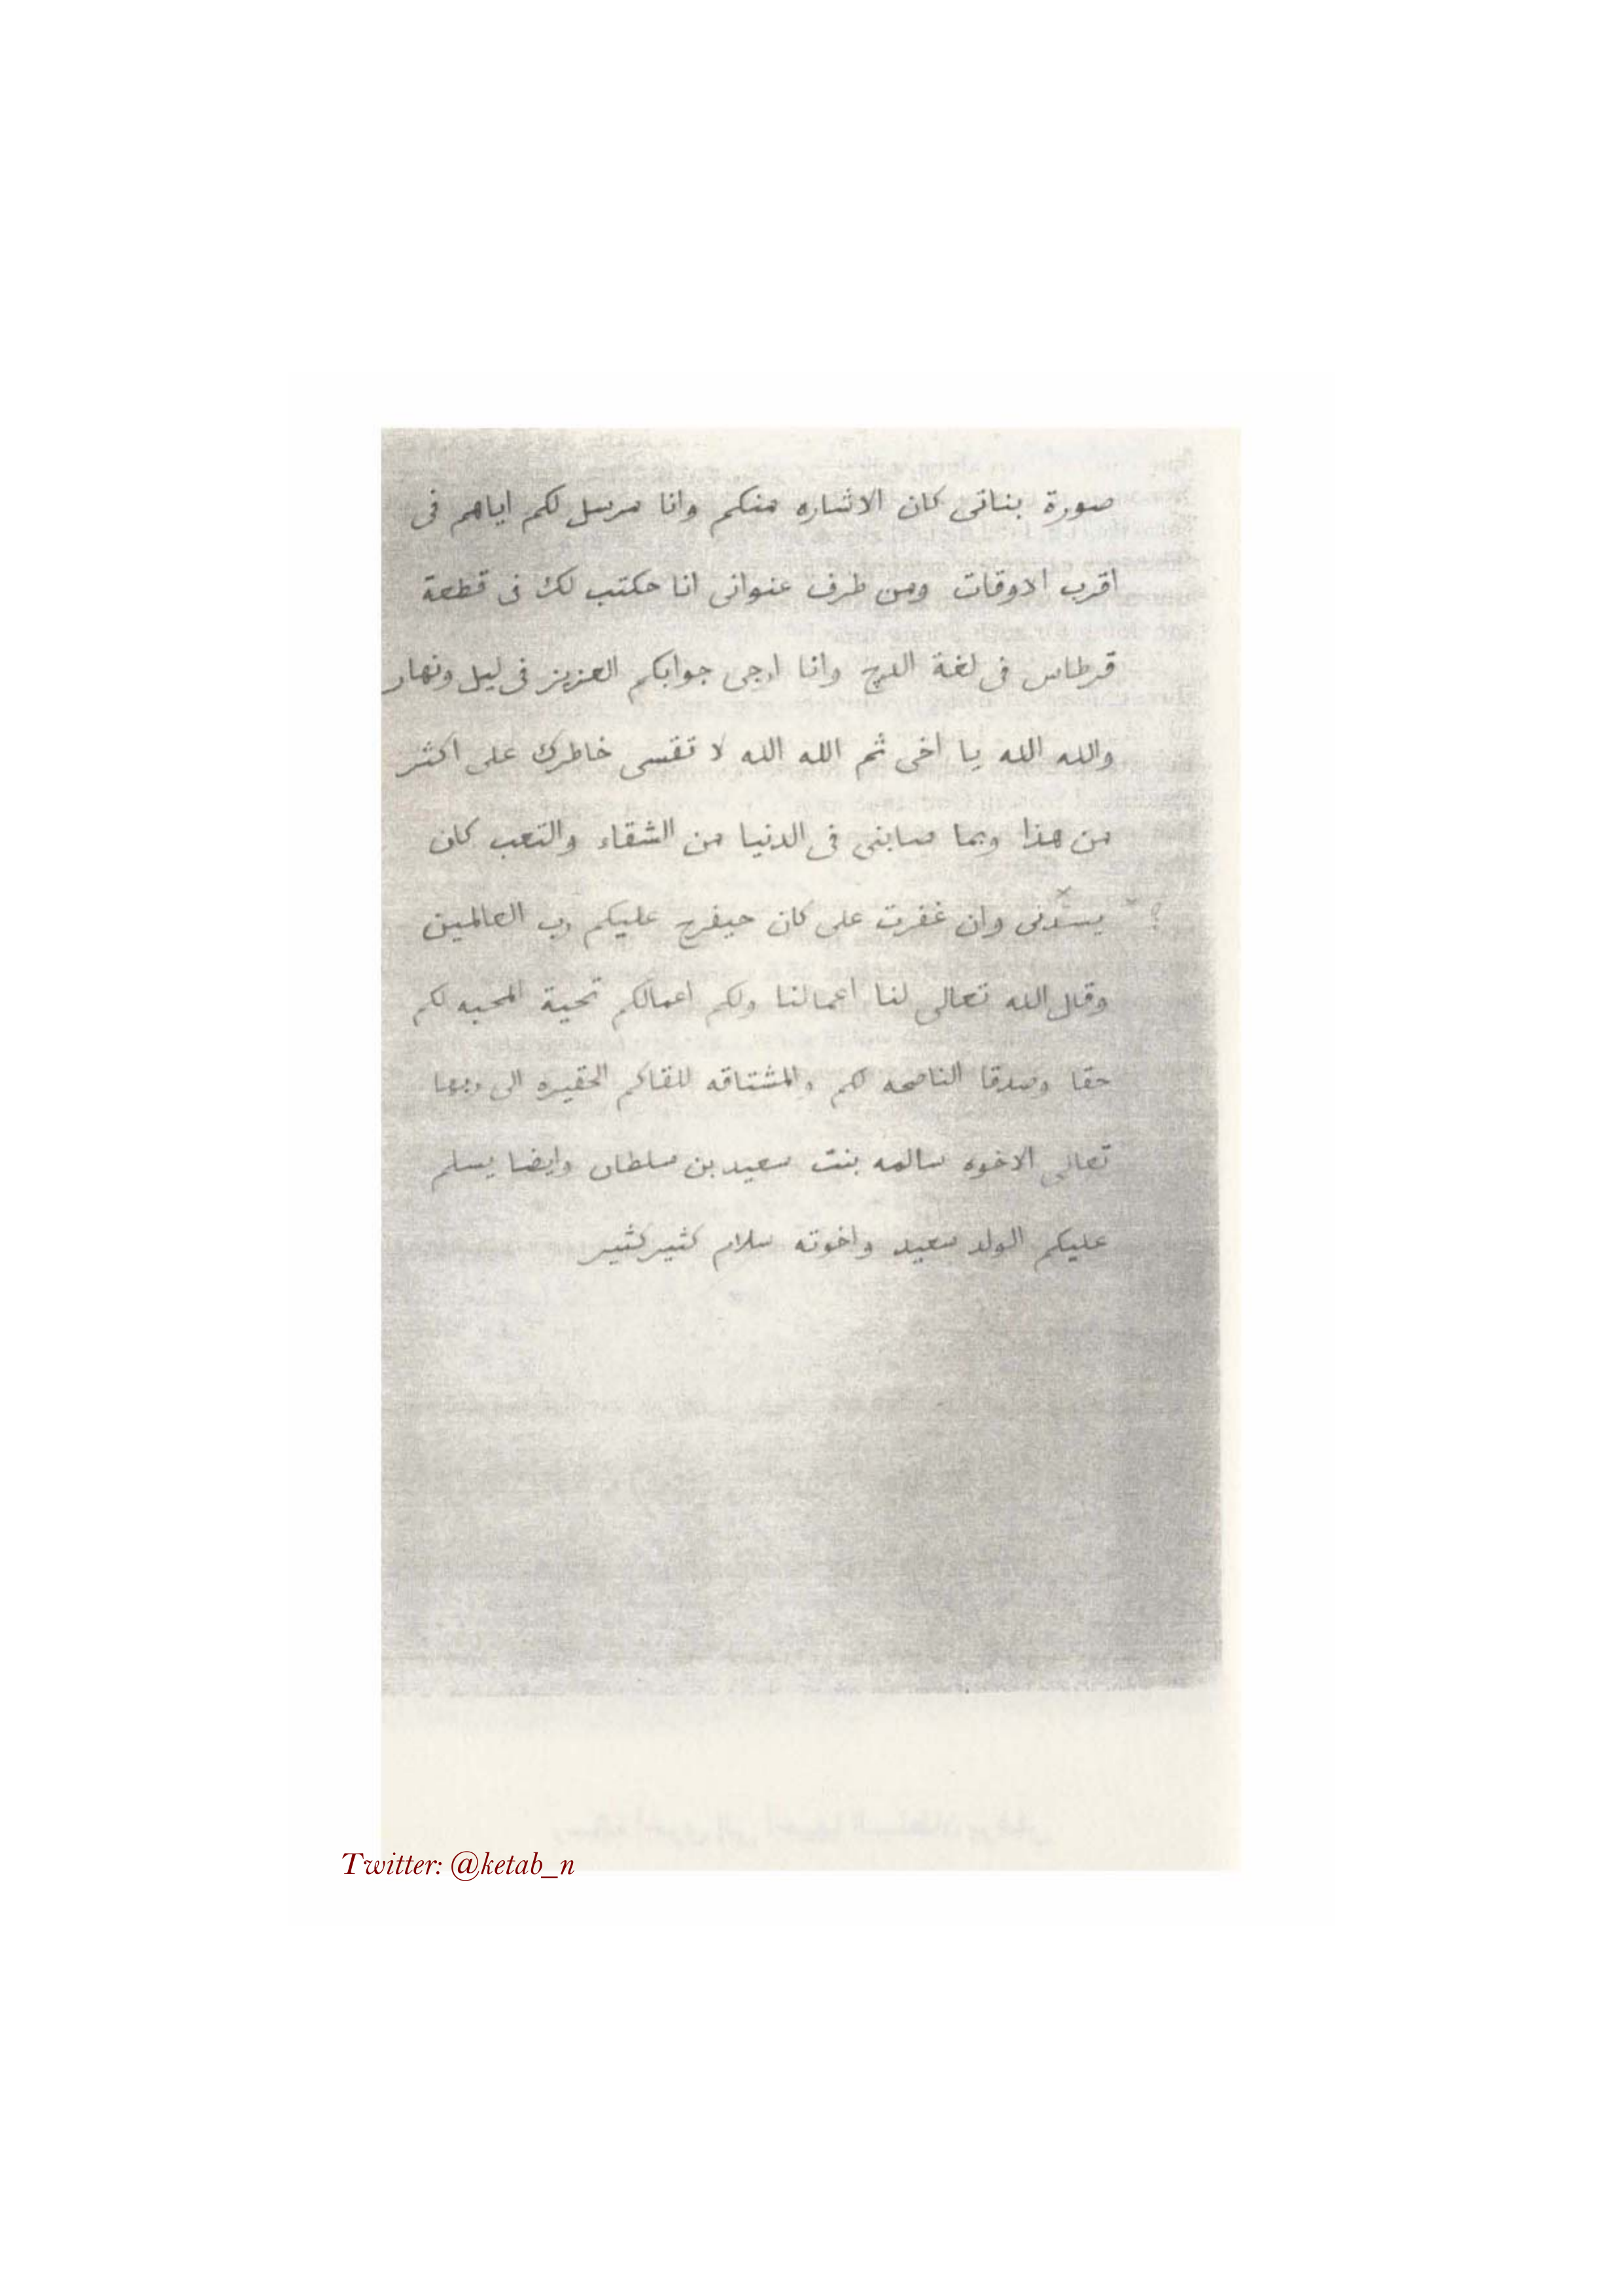 صورة بناتى كان الاشاره منكم وانا مرسل لكم اياهم فى
اقرب الاوقات ومن طرف عنوانى انا حكتب لك فى قطعة
قرطاس فى لغة وانا ارجى جوابكم العزيز فى ليل ونهار
والله الله يا اخى ثم الله الله لا تقسى خاطرك على اكثر
من هذا وبما صابنى فى الدنيا من الشقاء والتعب كان
يسدّنى وان غفرت على كان حيفرج عليكم رب العالمين
وقال الله تعالى لنا اعمالنا ولكم اعمالكم تحية المحبه لكم
حقا وصدقا الناصحه لكم والمشتاقه للقاكم الحقيره الى ربها
تعالى الاخوه سالمه بنت سعيد بن سلطان وايضا يسلم
عليكم الولد سعيد واخوته سلام كثير كثير
Twitter: @ketab_n